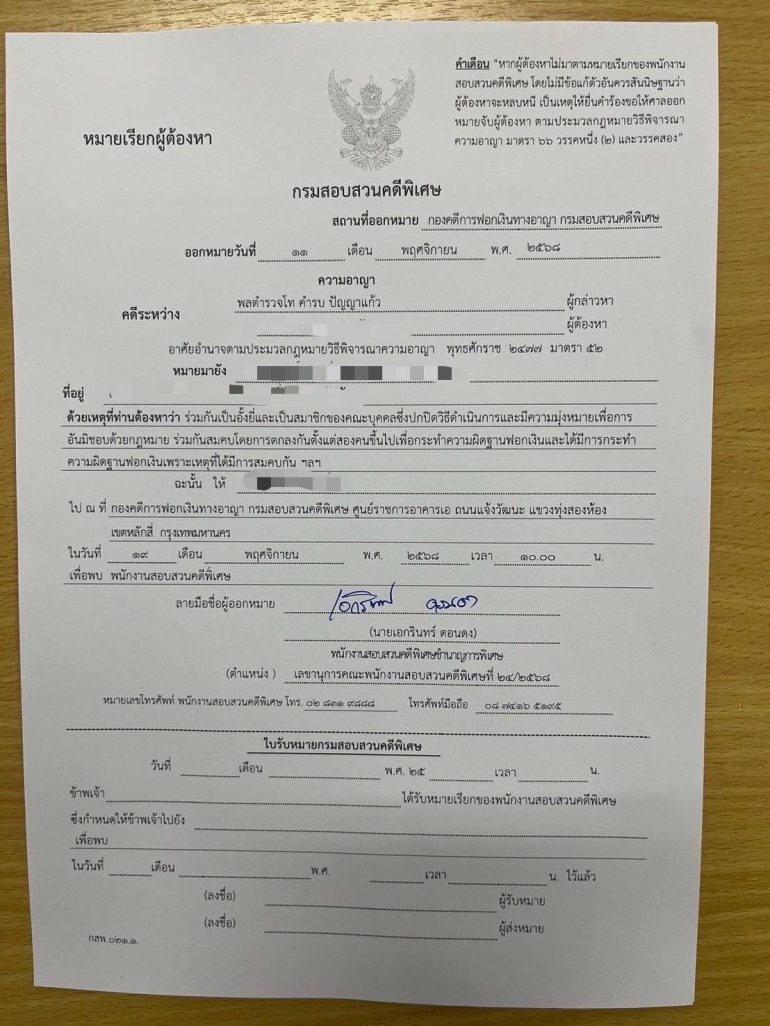 คำเตือน "หากผู้ต้องหาไม่มาตามหมายเรียกของพนักงาน
สอบสวนคดีพิเศษ โดยไม่มีข้อแก้ตัวอันควรสันนิษฐานว่า
ผู้ต้องหาจะหลบหนี เป็นเหตุให้ยื่นคำร้องขอให้ศาลออก
หมายจับผู้ต้องหา ตามประมวลกฎหมายวิธีพิจารณา
ความอาญา มาตรา ๖๖ วรรคหนึ่ง (๒) และวรรคสอง"
หมายเรียกผู้ต้องหา
กรมสอบสวนคดีพิเศษ
สถานที่ออกหมาย กองคดีการฟอกเงินทางอาญา กรมสอบสวนคดีพิเศษ
ออกหมายวันที่ ๑๑ เดือน พฤศจิกายน พ.ศ. ๒๕๖๘
ความอาญา
คดีระหว่าง
พลตำรวจโท คำรบ ปัญญาแก้ว ผู้กล่าวหา
ผู้ต้องหา
อาศัยอำนาจตามประมวลกฎหมายวิธีพิจารณาความอาญา พุทธศักราช ๒๔๗๗ มาตรา ๕๒
หมายมายัง
ที่อยู่
ด้วยเหตุที่ท่านต้องหาว่า ร่วมกันเป็นอั้งยี่และเป็นสมาชิกของคณะบุคคลซึ่งปกปิดวิธีดำเนินการและมีความมุ่งหมายเพื่อการ
อันมิชอบด้วยกฎหมาย ร่วมกันสมคบโดยการตกลงกันตั้งแต่สองคนขึ้นไปเพื่อกระทำความผิดฐานฟอกเงินและได้มีการกระทำ
ความผิดฐานฟอกเงินเพราะเหตุที่ได้มีการสมคบกัน ฯลฯ
ฉะนั้น ให้
ไป ณ ที่ กองคดีการฟอกเงินทางอาญา กรมสอบสวนคดีพิเศษ ศูนย์ราชการอาคารเอ ถนนแจ้งวัฒนะ แขวงทุ่งสองห้อง
เขตหลักสี่ กรุงเทพมหานคร
ในวันที่ ๑๙ เดือน พฤศจิกายน พ.ศ. ๒๕๖๘ เวลา ๑๐.๐๐ น.
เพื่อพบ พนักงานสอบสวนคดีพิเศษ
ลายมือชื่อผู้ออกหมาย
(นายเอกรินทร์ ดอนดง)
พนักงานสอบสวนคดีพิเศษชำนาญการพิเศษ
(ตำแหน่ง ) เลขานุการคณะพนักงานสอบสวนคดีพิเศษที่ ๒๔/๒๕๖๘
หมายเลขโทรศัพท์ พนักงานสอบสวนคดีพิเศษ โทร. ๐๒ ๘๓๑ ๙๘๘๘ โทรศัพท์มือถือ ๐๘ ๗๔๑๖ ๕๑๙๕
ใบรับหมายกรมสอบสวนคดีพิเศษ
วันที่ เดือน พ.ศ. ๒๕ เวลา น.
ข้าพเจ้า ได้รับหมายเรียกของพนักงานสอบสวนคดีพิเศษ
ซึ่งกำหนดให้ข้าพเจ้าไปยัง
เพื่อพบ
ในวันที่ เดือน พ.ศ. เวลา น. ไว้แล้ว
(ลงชื่อ) ผู้รับหมาย
(ลงชื่อ) ผู้ส่งหมาย
กสพ.๐๒๑.๑.